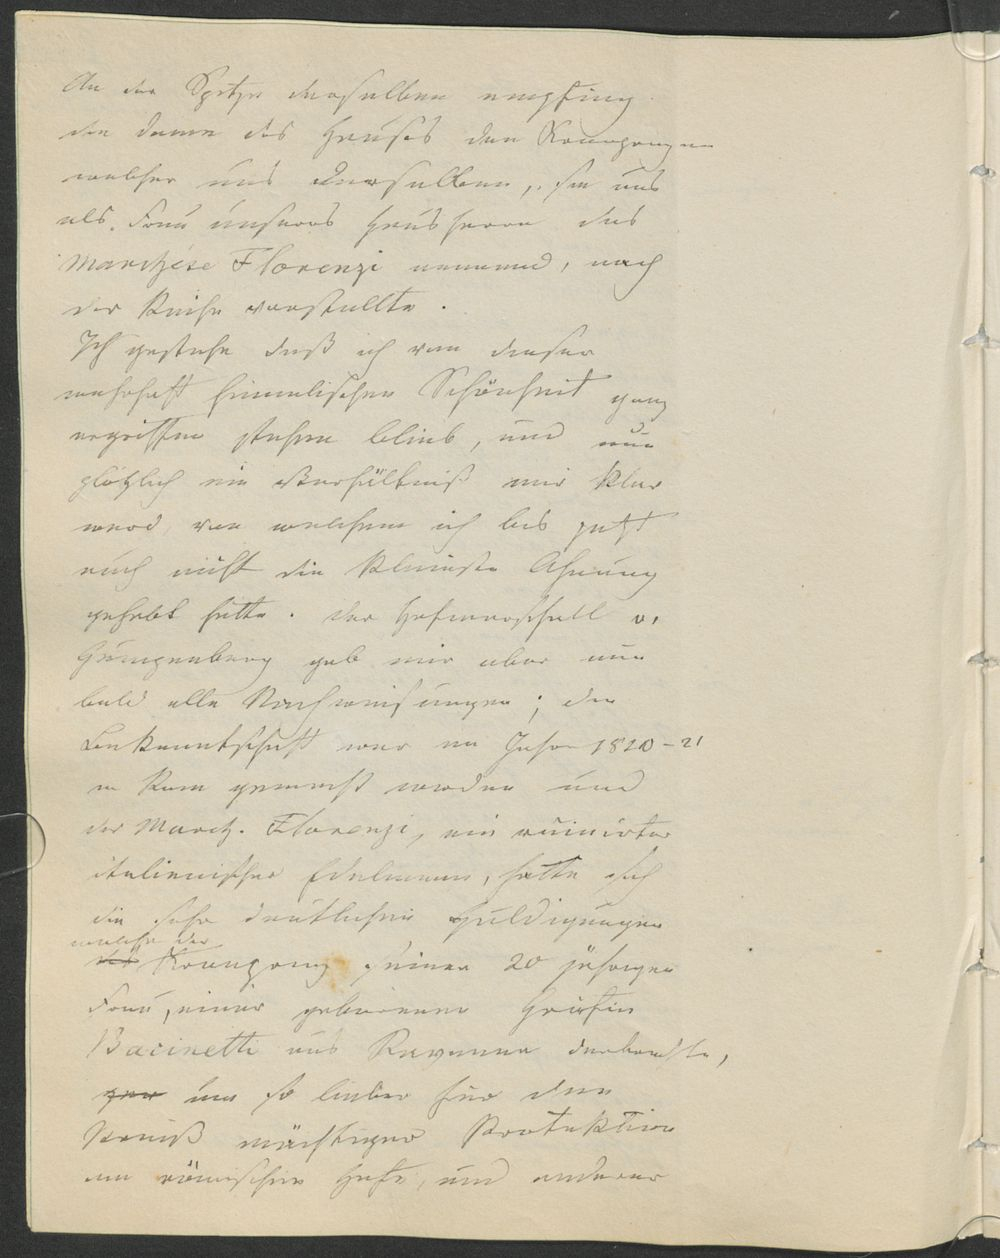 An der Spitze derselben empfing
die Dame des Hauses den Kronprinzen
welcher uns derselben, sie uns
als Frau unseres Hausherrn des
Marchese Florenzi nennend, nach
der Reihe vorstellte.
Ich gestehe daß ich von dieser
wahrhaft himmlischen Schönheit ganz
ergriffen stehen blieb, und nun
plötzlich ein Verhältniß mir klar
ward von welchem ich bis jetzt
auch nicht die kleinste Ahnung
gehabt hatte. Der Hofmarschall v.
Gumppenberg gab mir aber nun
bald alle Nachweisungen; die
Bekanntschaft war im Jahre 1820-21
in Rom gemacht worden und
der March. Florenzi, ein ruinirter
italienischer Edelmann, hatte sich
die sehr deutlichen Huldigungen
welche der
Kronprinz seiner 20 jährigen
Frau, einer gebornen Gräfin
Bacinetti aus Ravenna darbrachte,
um so lieber für den
Preiß mächtiger Protektion
am römischen Hofe, und anderer